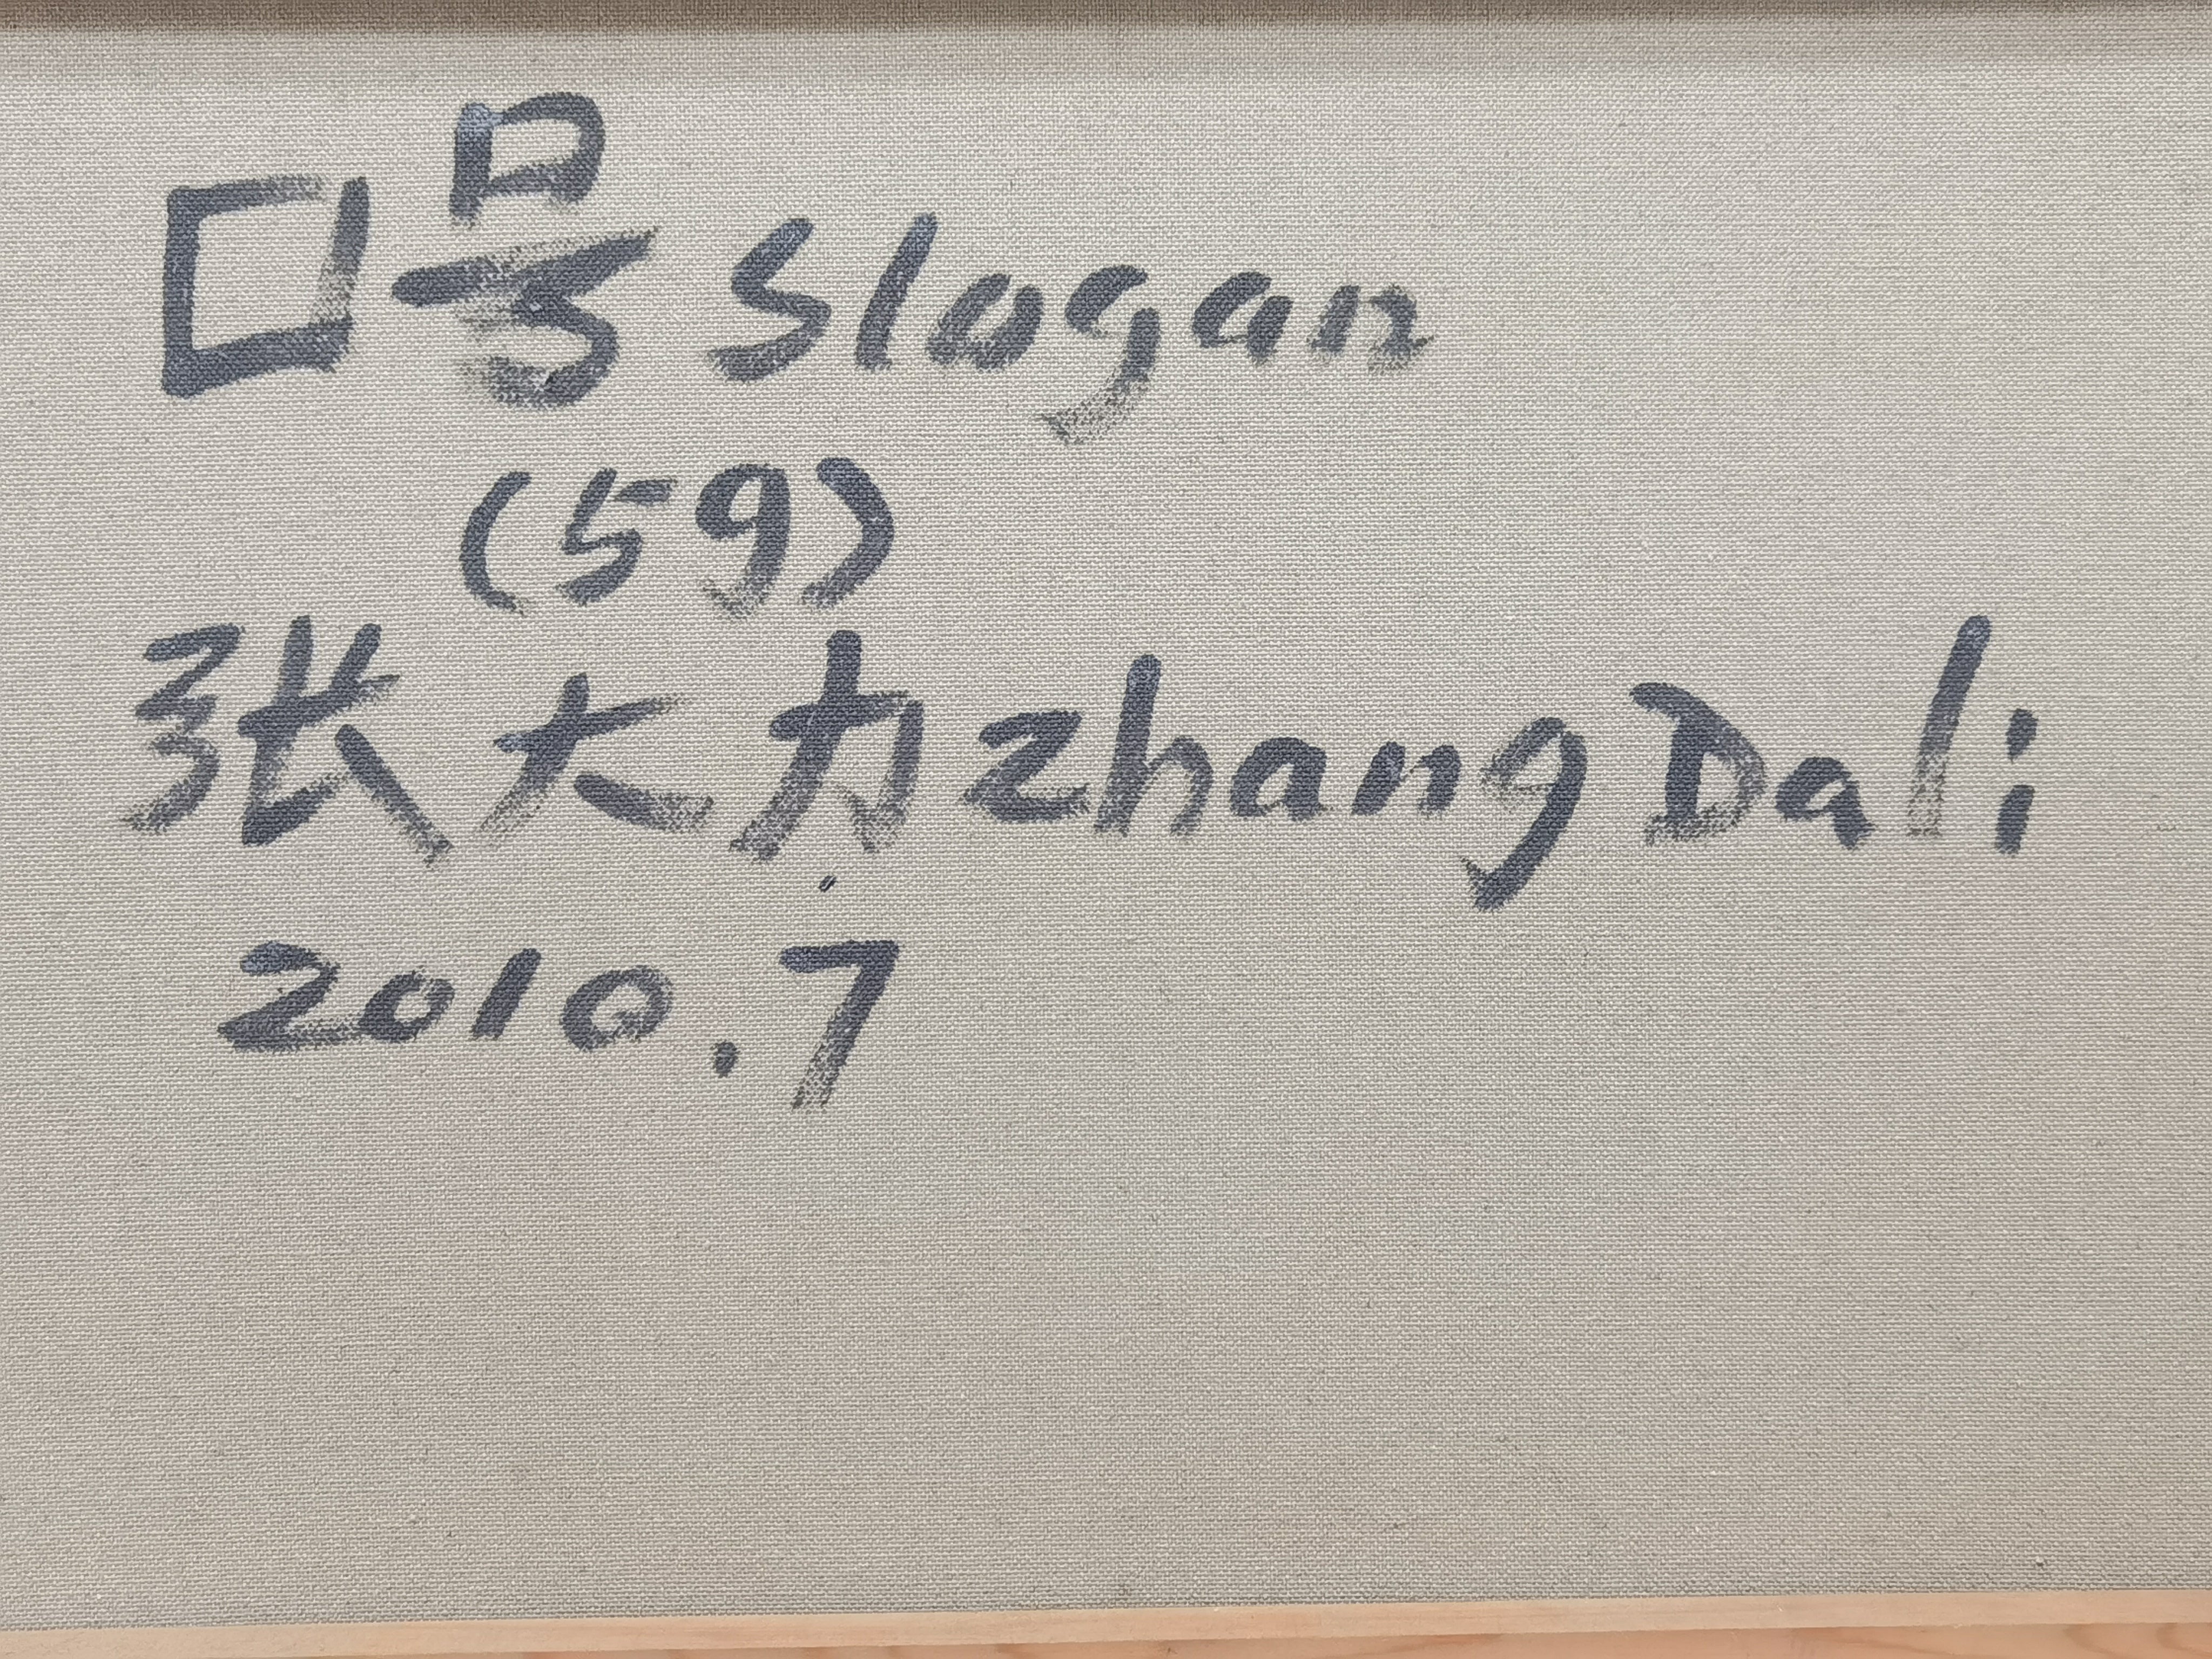 口号 Slogan
(59)
张大力 Zhang Dali
2010.7